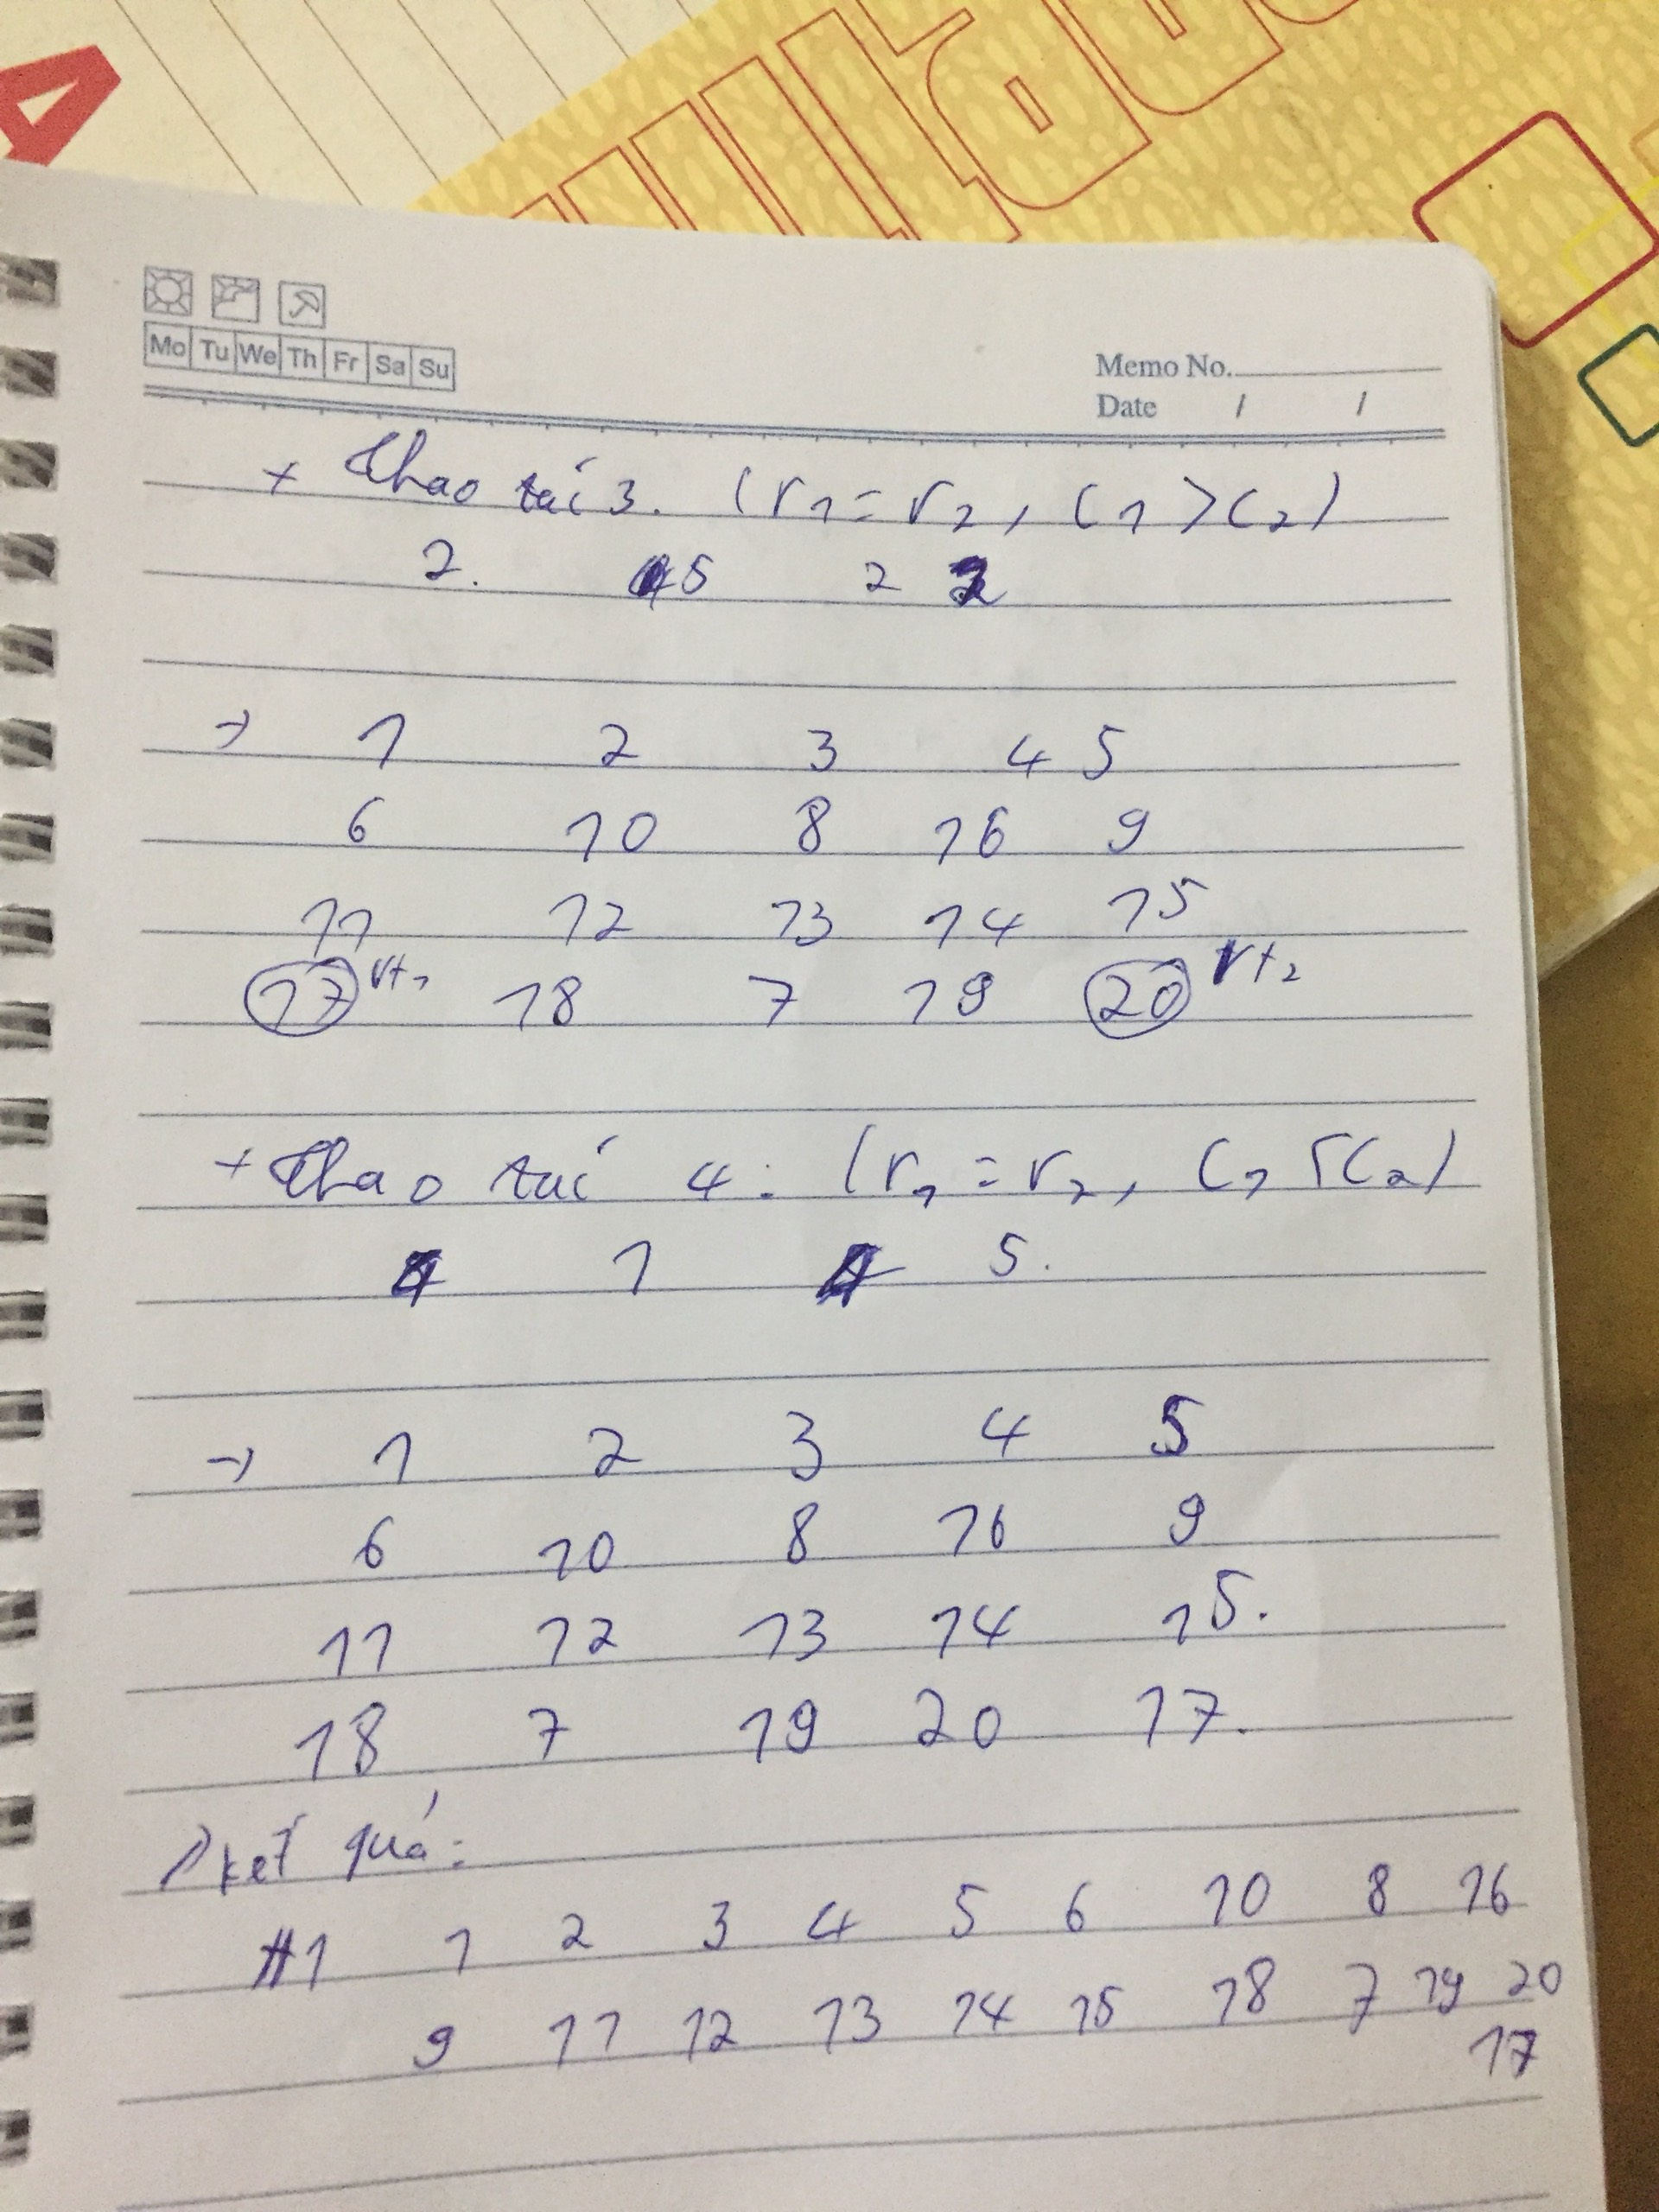 Mo Tu We Th Fr Sa Su
Memo No.
Date / /
+ Thao tác 3. (r1 = r2, c1 > c2)
2. 5 2 2
→ 1 2 3 4 5
6 10 8 16 9
11 12 13 14 15
17 vt1 18 7 19 20 vt2
+ Thao tác 4: (r1 = r2, c1 < c2)
4 1 4 5.
→ 1 2 3 4 5
6 10 8 16 9
11 12 13 14 15.
18 7 19 20 17.
kết quả:
#1 1 2 3 4 5 6 10 8 16
9 11 12 13 14 15 18 7 19 20
17